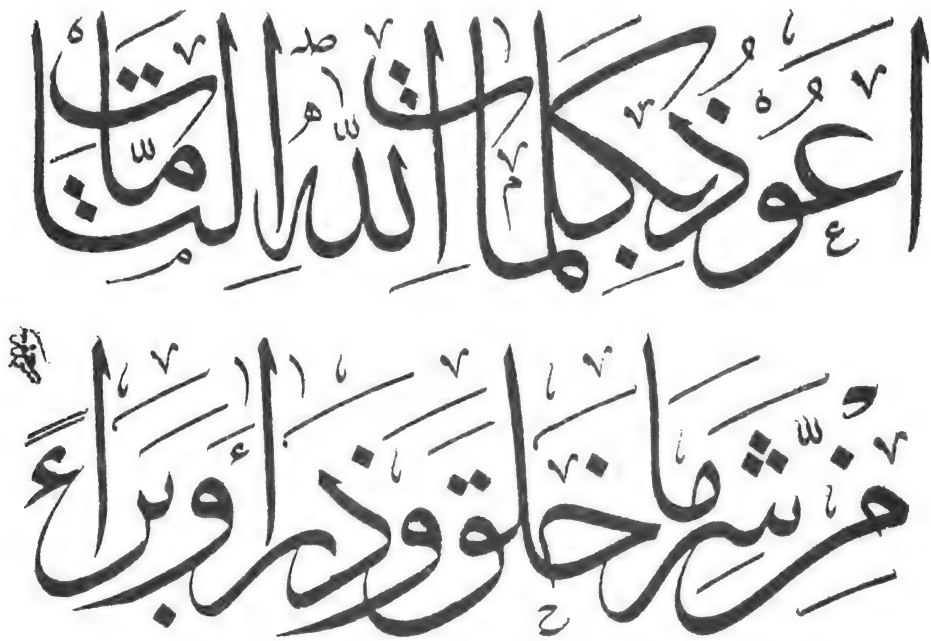 اَعُوذُ بِكَلِمَاتِ اللّٰهِ التَّامَّاتِ
مِنْ شَرِّ مَا خَلَقَ وَذَرَاَ وَبَرَاَءً